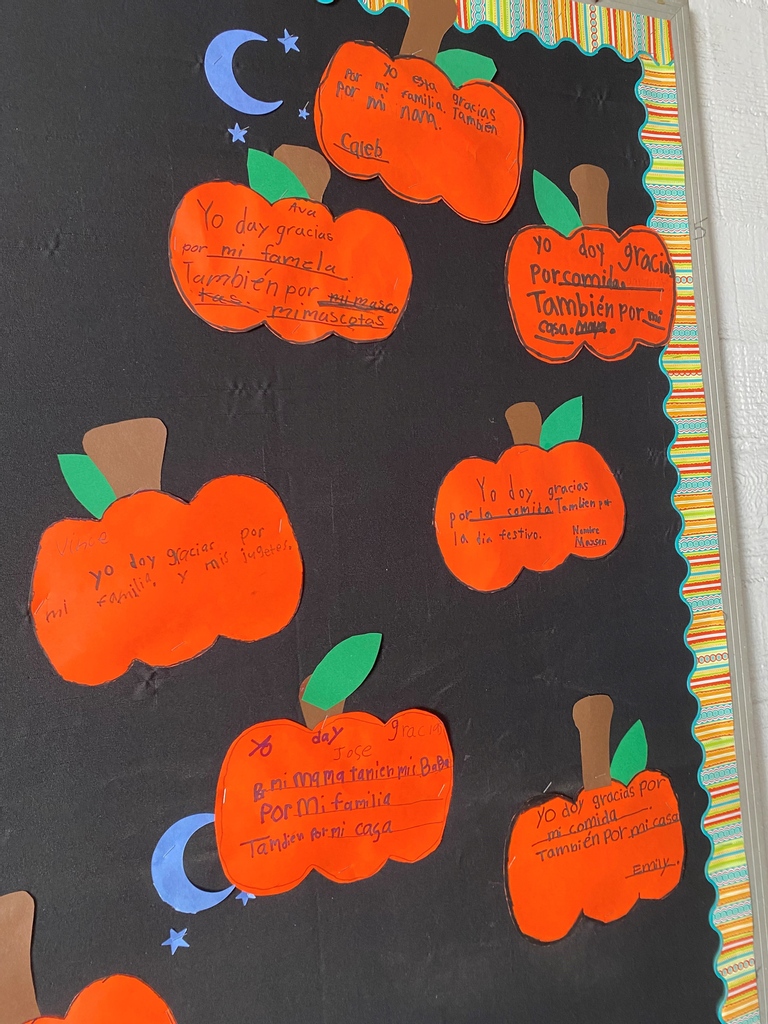 Yo esta gracias
por mi familia También
por mi nana.
Caleb
Ava
Yo day gracias
por mi famela.
También por mi masco
tas. mi mascotas
yo doy gracia
Por comida.
También por mi
casa.
Yo doy gracias
por la comida Tambien por
la dia festivo.
Nombre
Mason
yo doy gracias por
mi familia. y mis jugetes.
Yo day gracias
Jose
mi mama tanien mis BaBa
Por Mi familia
Tamdien Por mi casa
Yo doy gracias por
mi comida.
También Por mi casa
Emily.